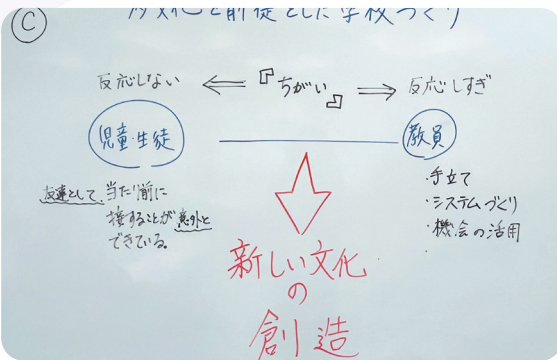 Ⓒ
多文化を前提とした学校づくり
反応しない ⇐ 『ちがい』 ⇒ 反応しすぎ
児童・生徒
教員
友達として、当たり前に
接することが意外と
できている。
・手立て
・システムづくり
・機会の活用
・
新しい文化
の
創造